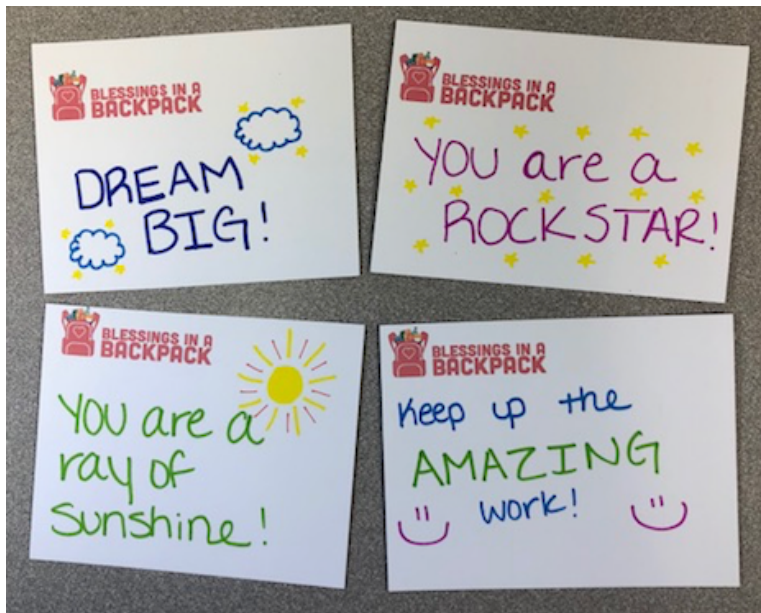 BLESSINGS IN A
BACKPACK
DREAM
BIG!
BLESSINGS IN A
BACKPACK
YOU are a
ROCKSTAR!
BLESSINGS IN A
BACKPACK
YOU are a
ray of
Sunshine!
BLESSINGS IN A
BACKPACK
Keep up the
AMAZING
work!